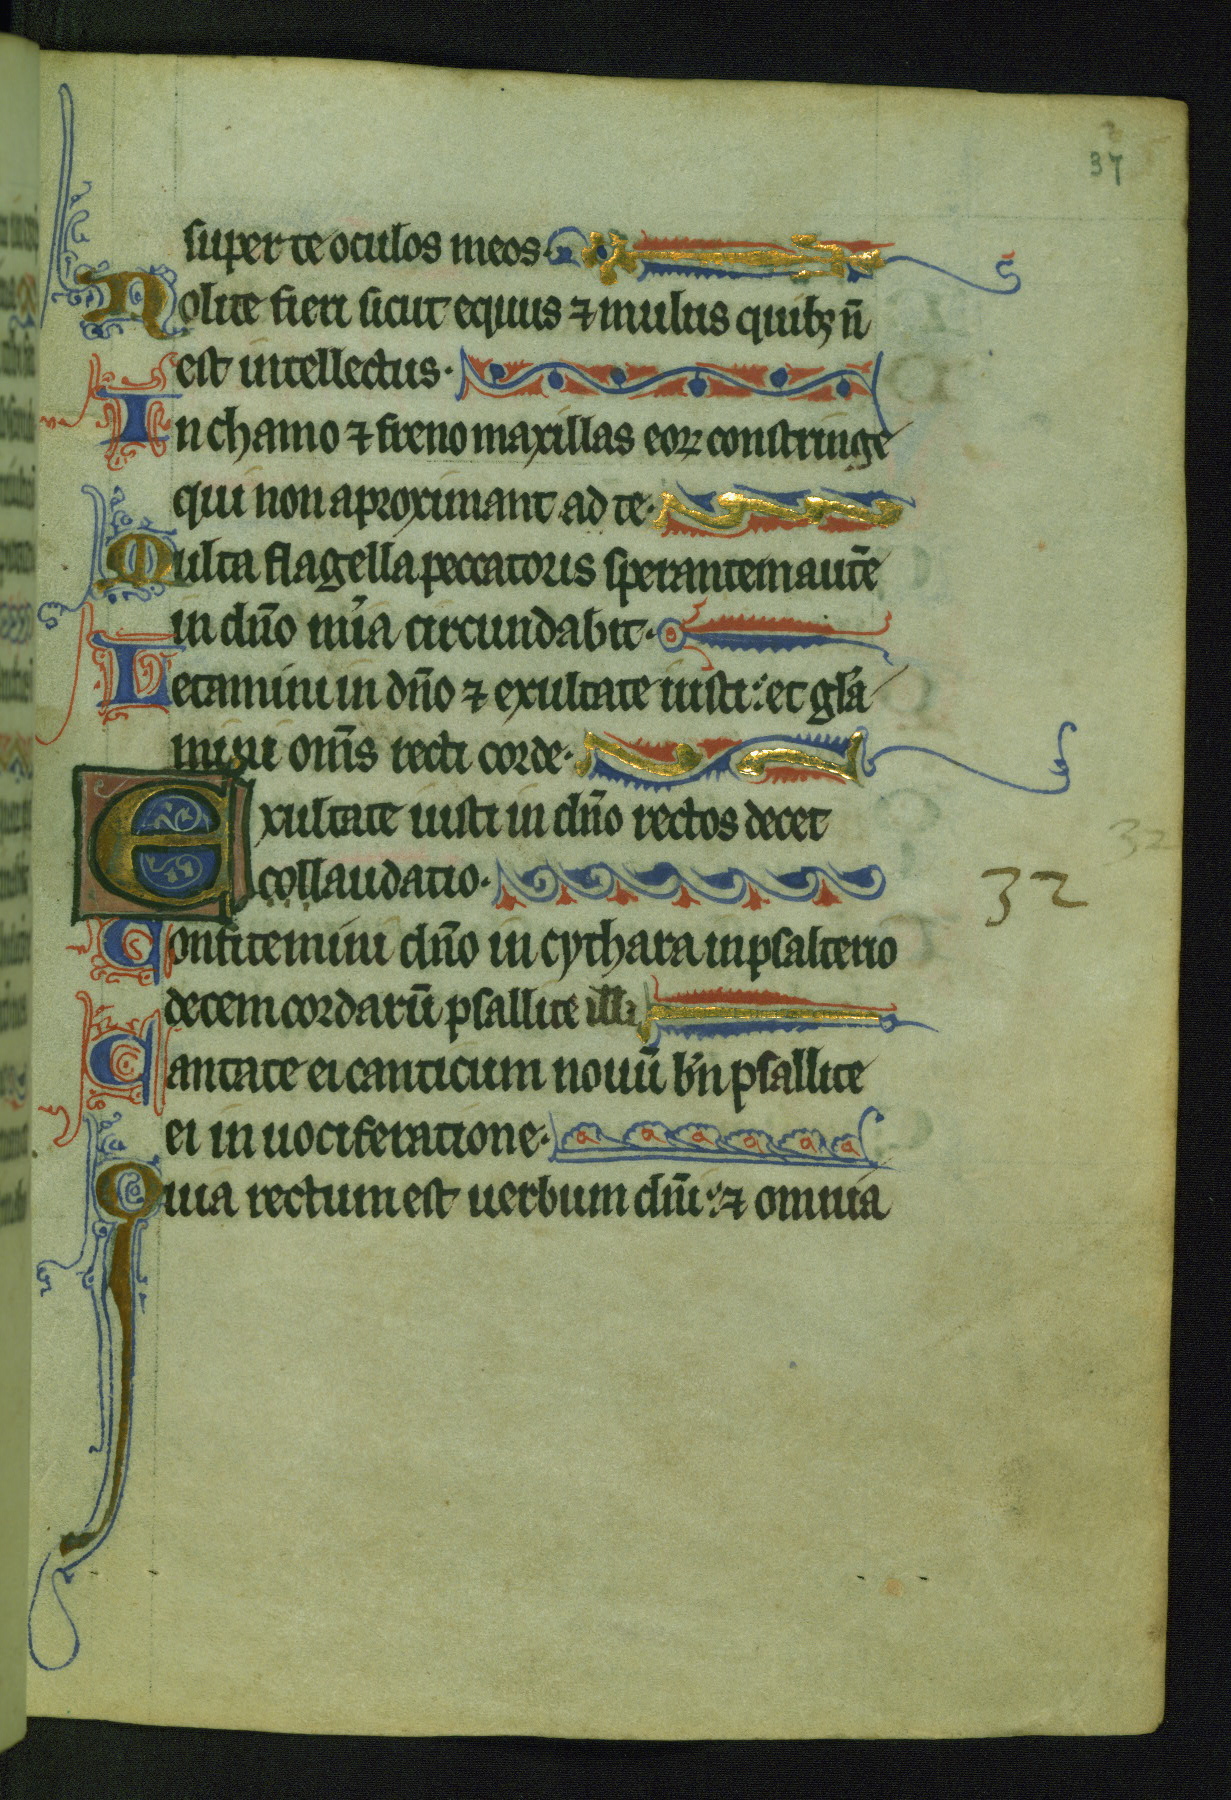 37
super te oculos meos·
Nolite fieri sicut equus ⁊ mulus quibꝫ n̄
est intellectus·
In chamo ⁊ freno maxillas eoꝝ constringe
qui non aproximant ad te·
Multa flagella peccatoris sperantem aut̄e
in dn̄o mı̄a circundabit·
Letamini in dn̄o ⁊ exultate iusti: et gl̄a
mini om̄s recti corde·
Exultate iusti in dn̄o rectos decet
collaudatio·
32
32
Confitemini dn̄o in cythara in psalterio
decem cordarū psallite illi
Cantate ei canticum nouū bn̄ psallite
ei in uociferatione·
Quia rectum est uerbum dn̄i: ⁊ omnia